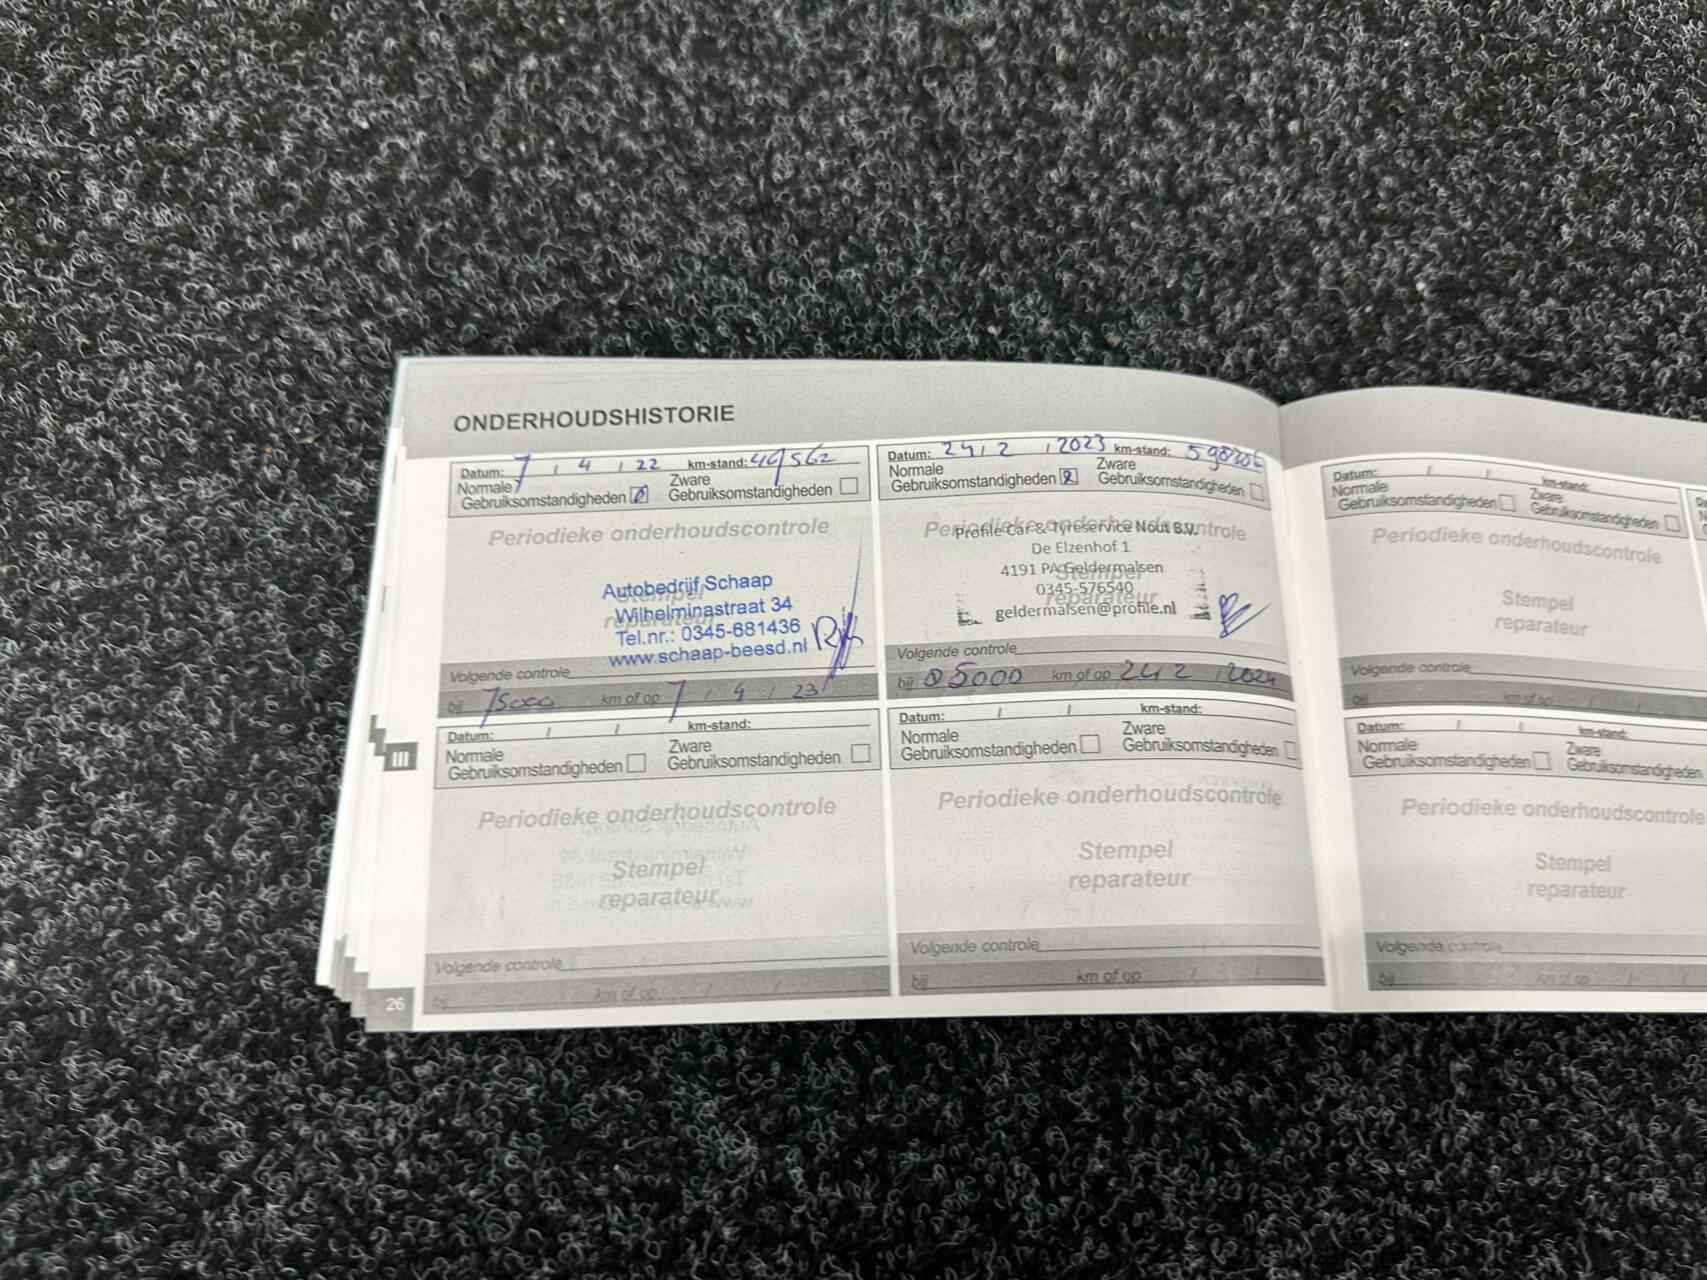 ONDERHOUDSHISTORIE
Datum: 7 / 4 / 22 km-stand:
Normale Gebruiksomstandigheden
Zware Gebruiksomstandigheden
Periodieke onderhoudscontrole
Stempel
reparateur
Autobedrijf Schaap
Wilhelminastraat 34
Tel.nr.: 0345-681436
www.schaap-beesd.nl
Volgende controle
bij 75000 km of op 7 / 4 / 23
Datum: 24 / 2 / 2023 km-stand:
Normale Gebruiksomstandigheden
Zware Gebruiksomstandigheden
Periodieke onderhoudscontrole
Stempel
reparateur
Profile Car & Tyreservice Nout B.V.
De Elzenhof 1
4191 PA Geldermalsen
0345-576540
geldermalsen@profile.nl
Volgende controle
bij 85000 km of op 24 / 2 / 2024
Datum: / / km-stand:
Normale
Gebruiksomstandigheden
Zware
Gebruiksomstandigheden
Periodieke onderhoudscontrole
Stempel
reparateur
Volgende controle
bij km of op / /
Datum: / / km-stand:
Normale
Gebruiksomstandigheden
Zware
Gebruiksomstandigheden
Periodieke onderhoudscontrole
Stempel
reparateur
Volgende controle
bij km of op / /
III
26
Datum: / / km-stand:
Normale
Gebruiksomstandigheden
Zware
Gebruiksomstandigheden
Periodieke onderhoudscontrole
Stempel
reparateur
Volgende controle
bij km of op / /
Datum: / / km-stand:
Normale
Gebruiksomstandigheden
Zware
Gebruiksomstandigheden
Periodieke onderhoudscontrole
Stempel
reparateur
Volgende controle
bij km of op / /